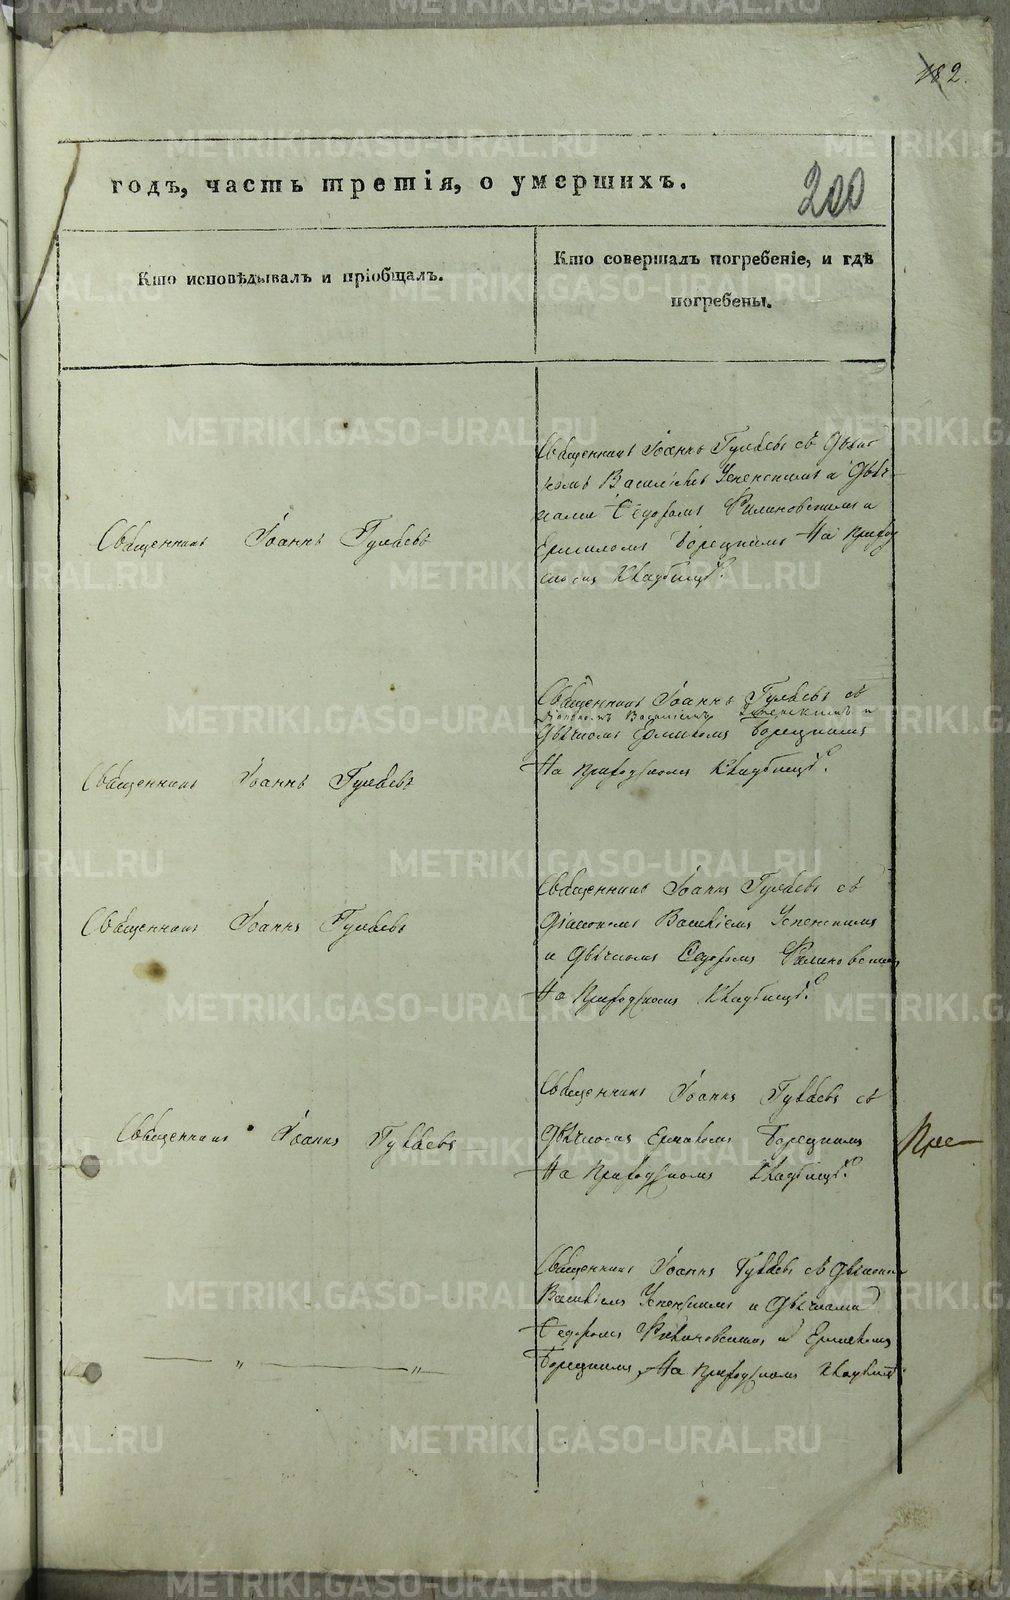 182.
200
годъ, часть третія, о умершихъ.
Кто исповѣдывалъ и пріобщалъ.
Кто совершалъ погребеніе, и гдѣ
погребены.
Священникъ Іоаннъ Гуляевъ
Священникъ Іоаннъ Гуляевъ съ Діако
номъ Василіемъ Успенскимъ и Дьяч
ками Ѳедоромъ Филиновскимъ и
Ермиломъ Борецкимъ На приход
скомъ Кладбищѣ.
Священникъ Іоаннъ Гуляевъ
Священникъ Іоаннъ Гуляевъ съ
Діакономъ Василіемъ Успенскимъ и
Дьячкомъ Борецкимъ
На приходскомъ Кладбищѣ.
Священникъ Іоаннъ Гуляевъ
Священникъ Іоаннъ Гуляевъ съ
Діакономъ Василіемъ Успенскимъ
и Дьячкомъ Ѳедоромъ Филиновскимъ
На приходскомъ Кладбищѣ.
Священникъ Іоаннъ Гуляевъ
Священникъ Іоаннъ Гуляевъ съ
Дьячкомъ Ермиломъ Борецкимъ
На приходскомъ Кладбищѣ.
— „ — „ —
Священникъ Іоаннъ Гуляевъ съ Діакономъ
Василіемъ Успенскимъ и Дьячками
Ѳедоромъ Филиновскимъ и Ермиломъ
Борецкимъ, На приходскомъ Кладбищѣ.
METRIKI.GASO-URAL.RU